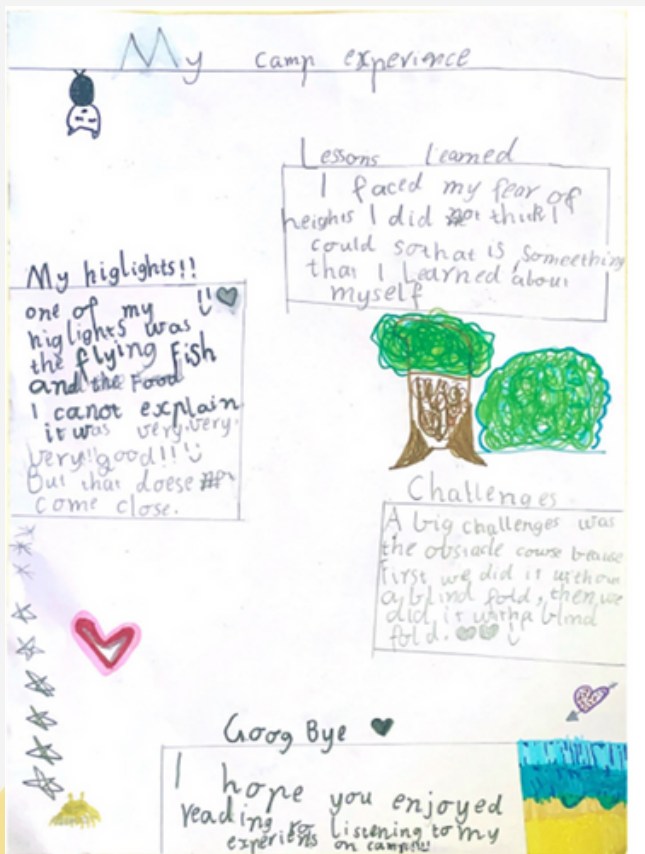 My camp experience
Lessons Learned
I faced my fear of
heights I did not think I
could so that is someething
that I Learned about
myself
My higlights!!
one of my
higlights was
the flying Fish
and the Food
I canot explain
it was very very
very!! good!!!
But that doese
come close.
Challenges
A big challenges was
the obstacle course because
first we did it without
a blind fold, then we
did it with a blind
fold.
Goog Bye
I hope you enjoyed
reading or Listening to my
on camp!!!